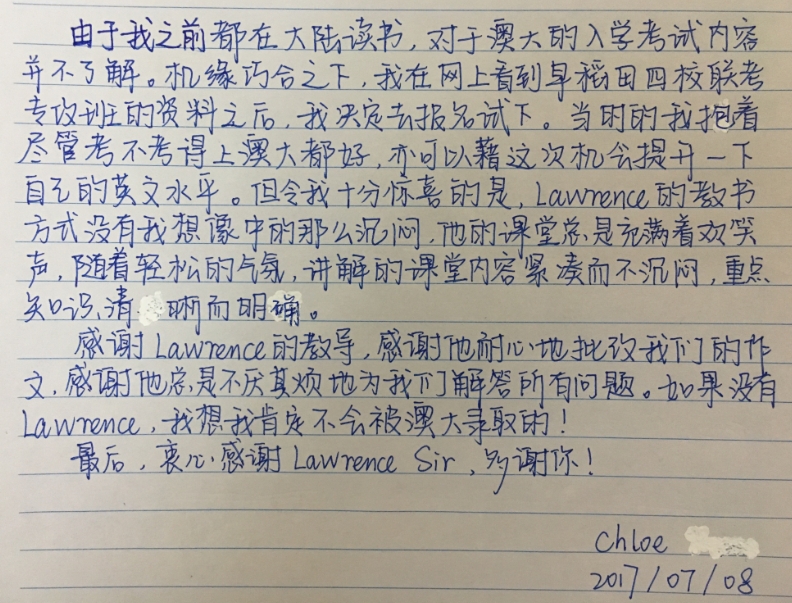 由于我之前都在大陆读书，对于澳大的入学考试内容
并不了解。机缘巧合之下，我在网上看到早稻田四校联考
专攻班的资料之后，我决定去报名试下。当时的我抱着
尽管考不考得上澳大都好，亦可以藉这次机会提升一下
自己的英文水平。但令我十分惊喜的是，Lawrence的教书
方式没有我想像中的那么沉闷，他的课堂总是充满着欢笑
声，随着轻松的气氛，讲解的课堂内容紧凑而不沉闷，重点
知识清晰而明确。
感谢Lawrence的教导，感谢他耐心地批改我们的作
文，感谢他总是不厌其烦地为我们解答所有问题。如果没有
Lawrence，我想我肯定不会被澳大录取的！
最后，衷心感谢Lawrence Sir，多谢你！
Chloe
2017/07/08